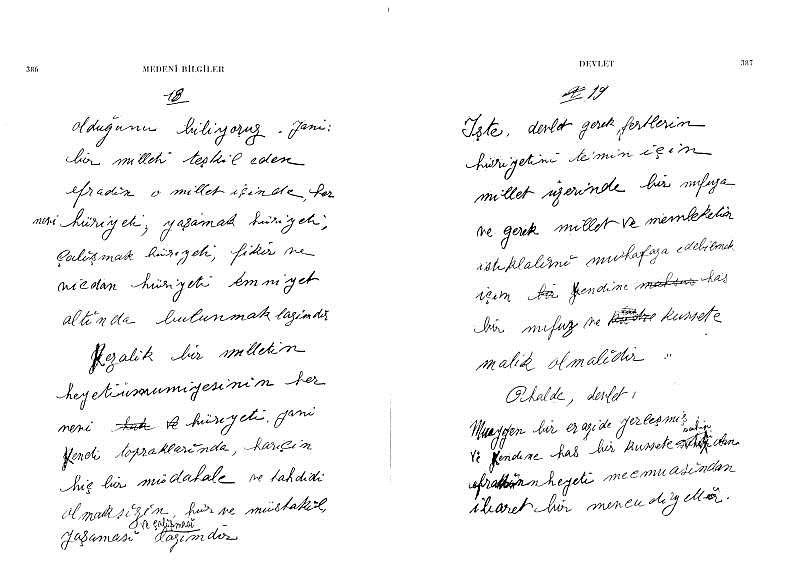 386
MEDENİ BİLGİLER
18
olduğunu biliyoruz. Yani:
bir milleti teşkil eden
efradın o millet içinde, her
nevi hüriyeti; yaşamak hüriyeti,
çalışmak hüriyeti, fikir ve
vicdan hüriyeti emniyet
altında bulunmak lazımdır
Kezalik bir milletin
heyeti umumiyesinin her
nevi hüriyeti. yani
kendi topraklarında, haricin
hiç bir müdahale ve tahdidi
olmaksızın, hür ve müstakil,
yaşaması ve çalışması lazımdır
DEVLET
387
19
İşte, devlet gerek, fertlerin
hüriyetini temin için
millet üzerinde bir nufuza
ve gerek millet ve memleketin
istiklalini muhafaza edebilmek
için kendine has
bir nufuz ve kuvvete
malik olmalıdır
Ohalde, devlet,
Muayyen bir arazide yerleşmiş
ve kendine has bir kuvvete sahip olan
efradın heyeti mecmuasından
ibaret bir mevcudiyettir.